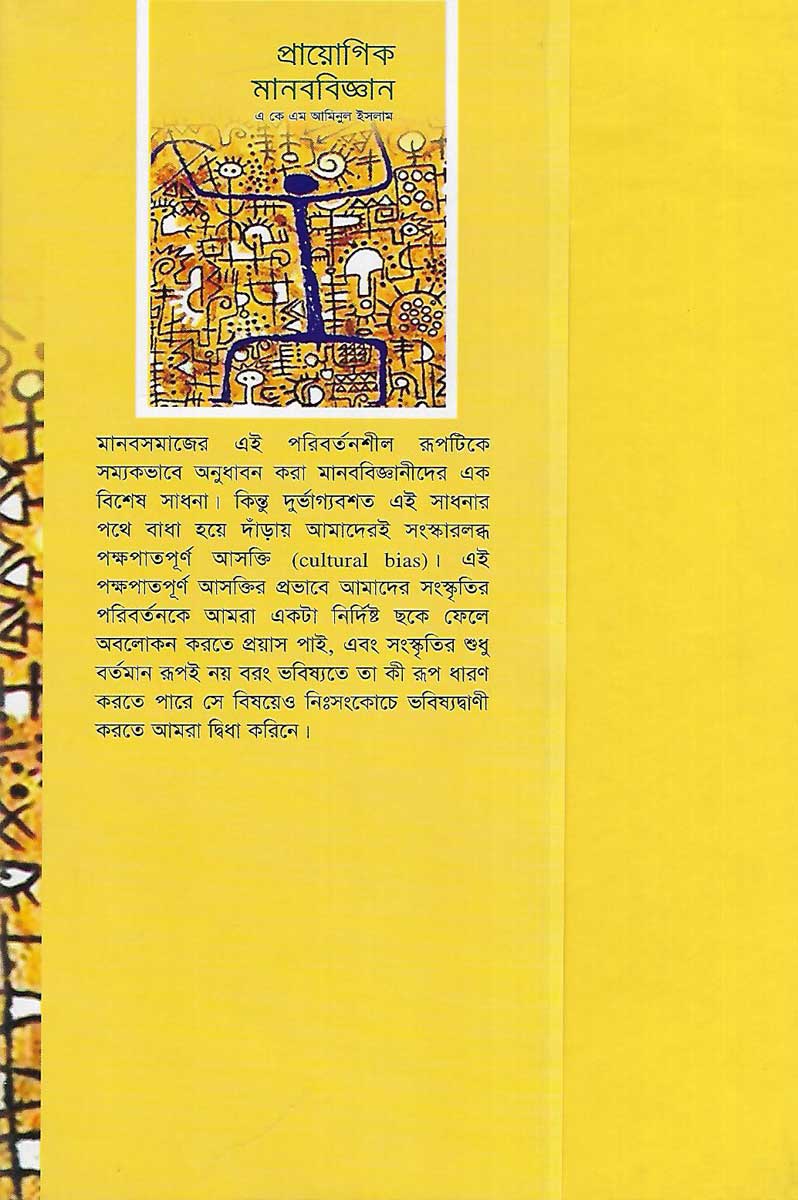 প্রায়োগিক
মানববিজ্ঞান
এ কে এম আমিনুল ইসলাম
মানবসমাজের এই পরিবর্তনশীল রূপটিকে
সম্যকভাবে অনুধাবন করা মানববিজ্ঞানীদের এক
বিশেষ সাধনা। কিন্তু দুর্ভাগ্যবশত এই সাধনার
পথে বাধা হয়ে দাঁড়ায় আমাদেরই সংস্কারলব্ধ
পক্ষপাতপূর্ণ আসক্তি (cultural bias)। এই
পক্ষপাতপূর্ণ আসক্তির প্রভাবে আমাদের সংস্কৃতির
পরিবর্তনকে আমরা একটা নির্দিষ্ট ছকে ফেলে
অবলোকন করতে প্রয়াস পাই, এবং সংস্কৃতির শুধু
বর্তমান রূপই নয় বরং ভবিষ্যতে তা কী রূপ ধারণ
করতে পারে সে বিষয়েও নিঃসংকোচে ভবিষ্যদ্বাণী
করতে আমরা দ্বিধা করিনে।